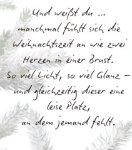 Und weißt du ...
manchmal fühlt sich die
Weihnachtszeit an wie zwei
Herzen in einer Brust.
So viel Licht, so viel Glanz –
und gleichzeitig dieser eine
leise Platz,
an dem jemand fehlt.